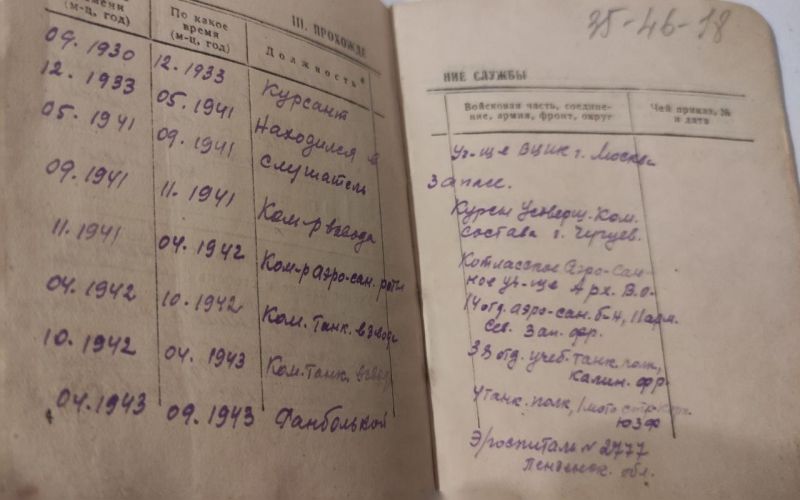 мени
(м-ц, год)
По какое
время
(м-ц, год)
III. ПРОХОЖДЕ
Должность*
09.1930 12.1933 Курсант
12.1933 05.1941 Находился в
05.1941 09.1941 слушатель
09.1941 11.1941 Ком-р взвода
11.1941 04.1942 Ком-р аэро-сан. роты
04.1942 10.1942 Ком. танк. взвода
10.1942 04.1943 Ком. танк. взвод
04.1943 09.1943
35-46-18
НИЕ СЛУЖБЫ
Войсковая часть, соедине-
ние, армия, фронт, округ
Чей приказ, №
и дата
Уч-ще ВЦИК г. Москва
Запасе.
Курсы Усверш. Ком.
состава г. Чугуев.
Котласское Аэро-сан-
ное уч-ще Арх. В.О.
14 отд. аэро-сан. б-н, 11 арм.
Сев. Зап. фр.
33 отд. учеб. танк. полк,
Калин. фр.
4 танк. полк, 1 мото стр. корп.
ЮЗФ
Э/госпиталь № 2777
Пензенск. обл.